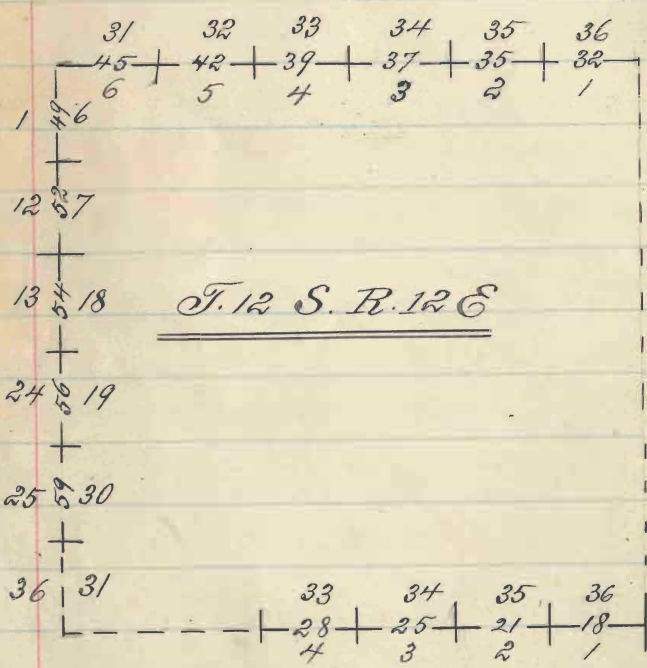 31 32 33 34 35 36
45 42 39 37 35 32
6 5 4 3 2 1
1 49 6
12 52 7
13 54 18
T. 12 S. R. 12 E
24 56 19
25 59 30
36 31
33 34 35 36
28 25 21 18
4 3 2 1